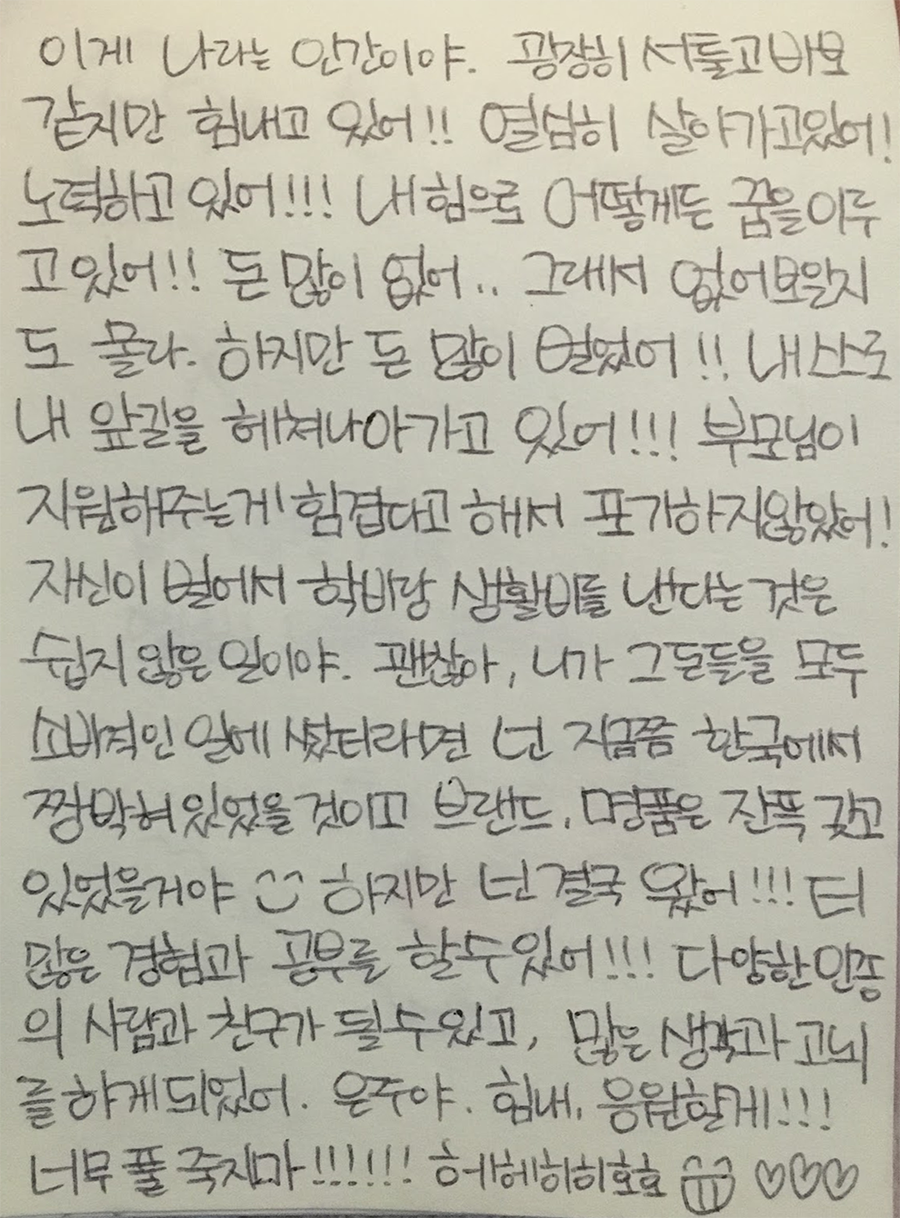 이게 나라는 인간이야. 굉장히 서툴고 바보
같지만 힘내고 있어!! 열심히 살아가고있어!
노력하고 있어!!! 내 힘으로 어떻게든 꿈을 이루
고 있어!! 돈 많이 없어.. 그래서 없어보일지
도 몰라. 하지만 돈 많이 벌었어!! 내 스스로
내 앞길을 헤쳐나아가고 있어!!! 부모님이
지원해주는게 힘겹다고 해서 포기하지않았어!
자신이 벌어서 학비랑 생활비를 낸다는 것은
쉽지 않은 일이야. 괜찮아, 니가 그돈들을 모두
소비적인 일에 썼더라면 넌 지금쯤 한국에서
짱박혀 있었을 것이고 브랜드, 명품은 잔뜩 갖고
있었을거야 하지만 넌 결국 왔어!!! 더
많은 경험과 공부를 할 수 있어!!! 다양한 인종
의 사람과 친구가 될 수 있고, 많은 생각과 고뇌
를 하게 되었어. 은주야. 힘내, 응원할게!!!
너무 풀 죽지마!!!!!! 헤헤히히호호